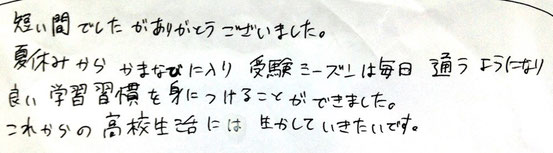 短い間でしたがありがとうございました。
夏休みから かまなびに入り 受験シーズンは毎日 通うようになり
良い学習習慣を身につけることができました。
これからの高校生活には生かしていきたいです。